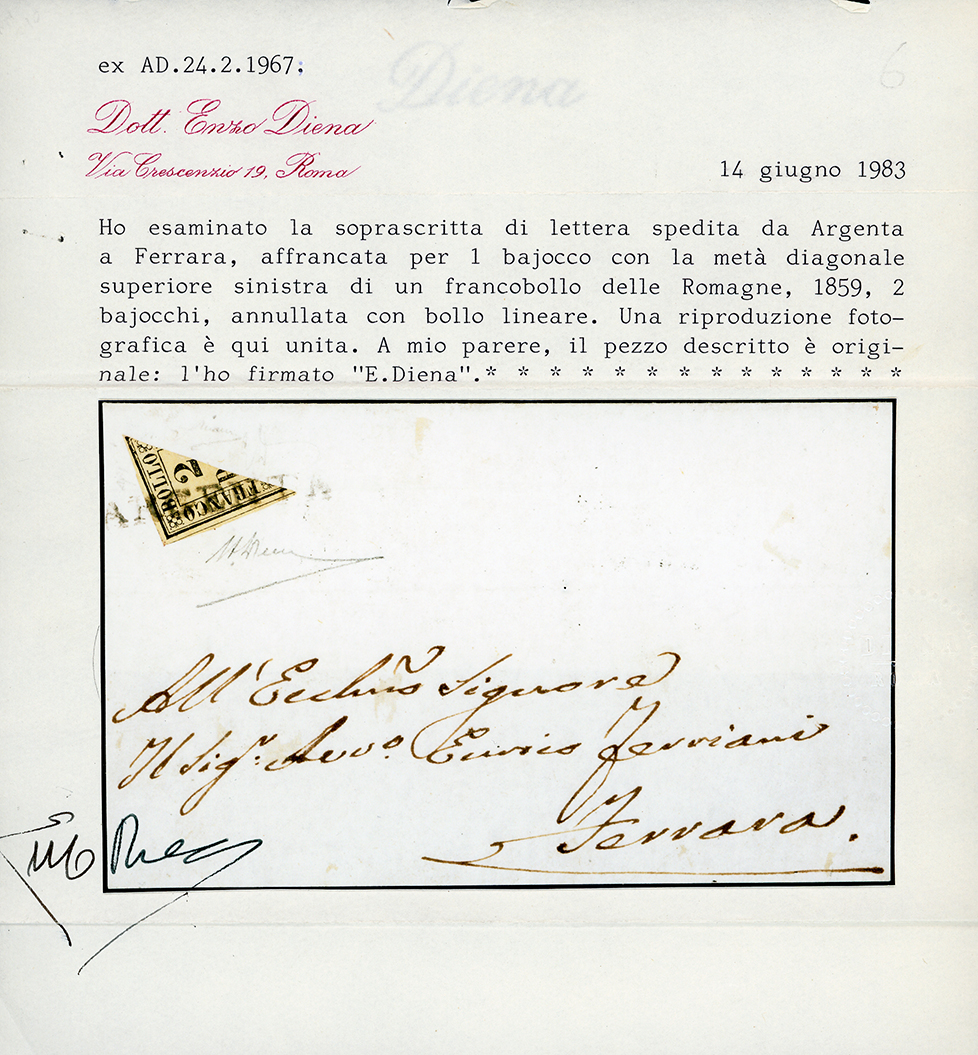 ex AD.24.2.1967.
Diena
6
Dott. Enzo Diena
Via Crescenzio 19, Roma
14 giugno 1983
Ho esaminato la soprascritta di lettera spedita da Argenta
a Ferrara, affrancata per 1 bajocco con la metà diagonale
superiore sinistra di un francobollo delle Romagne, 1859, 2
bajocchi, annullata con bollo lineare. Una riproduzione foto-
grafica è qui unita. A mio parere, il pezzo descritto è origi-
nale: l'ho firmato "E.Diena".* * * * * * * * * * * * * *
BOLLO
2
FRANCO
All' Signore
Il Sig.r Avv.o Ferriani
Ferrara.